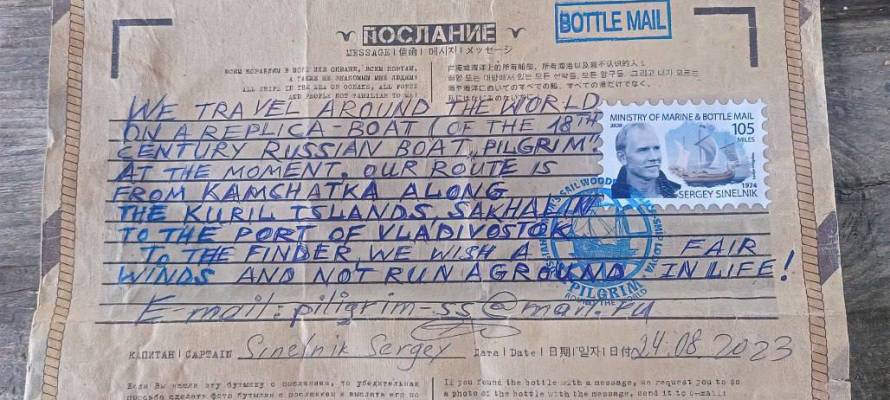 BOTTLE MAIL
ПОСЛАНИЕ
MESSAGE | 信函 | 메시지 | メッセージ
ВСЕМ КОРАБЛЯМ В МОРЕ ИЛИ ОКЕАНЕ, ВСЕМ ПОРТАМ,
А ТАКЖЕ НЕ ЗНАКОМЫМ МНЕ ЛЮДЯМ!
ALL SHIPS IN THE SEA OR OCEANS, ALL PORTS
AND PEOPLE NOT FAMILIAR TO ME!
WE TRAVEL AROUND THE WORLD
ON A REPLICA-BOAT (OF THE 18TH
CENTURY RUSSIAN BOAT „PILGRIM"
AT THE MOMENT, OUR ROUTE IS
FROM KAMCHATKA ALONG
THE KURIL ISLANDS, SAKHALIN
TO THE PORT OF VLADIVOSTOK
TO THE FINDER, WE WISH A FAIR
WINDS AND NOT RUN AGROUND IN LIFE!
E-mail: piligrim-ss@mail.ru
MINISTRY OF MARINE & BOTTLE MAIL
105
MILES
1974
SERGEY SINELNIK
PILGRIM
КАПИТАН | CAPTAIN Sinelnik Sergey Дата | Date | 日期 | 일자 | 日付 24.08.2023
Если Вы нашли эту бутылку с посланием, то убедительная
просьба сделать фото бутылки с посланием и выслать его по
If you found the bottle with a message, we request you to do
a photo of the bottle with the message, send it to e-mail: